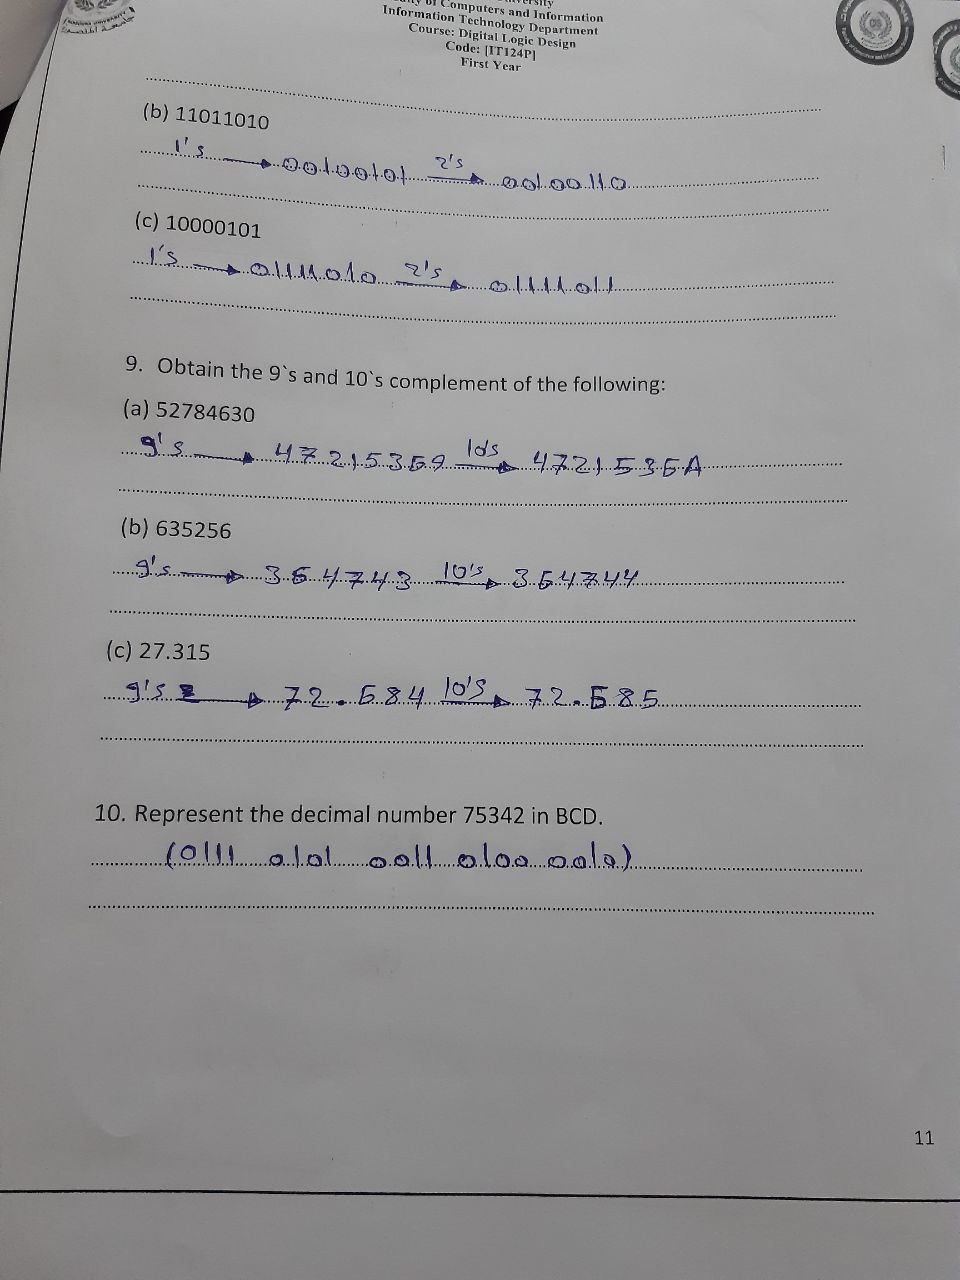 of Computers and Information
Information Technology Department
Course: Digital Logic Design
Code: [IT124P]
First Year
(b) 11011010
1's → 00100101 2's → 00100110
(c) 10000101
1's → 01111010 2's → 01111011
9. Obtain the 9`s and 10`s complement of the following:
(a) 52784630
9's → 47215369 10's → 4721536A
(b) 635256
9's → 364743 10's → 364744
(c) 27.315
9's → 72.684 10's → 72.685
10. Represent the decimal number 75342 in BCD.
(0111 0101 0011 0100 0010)
11